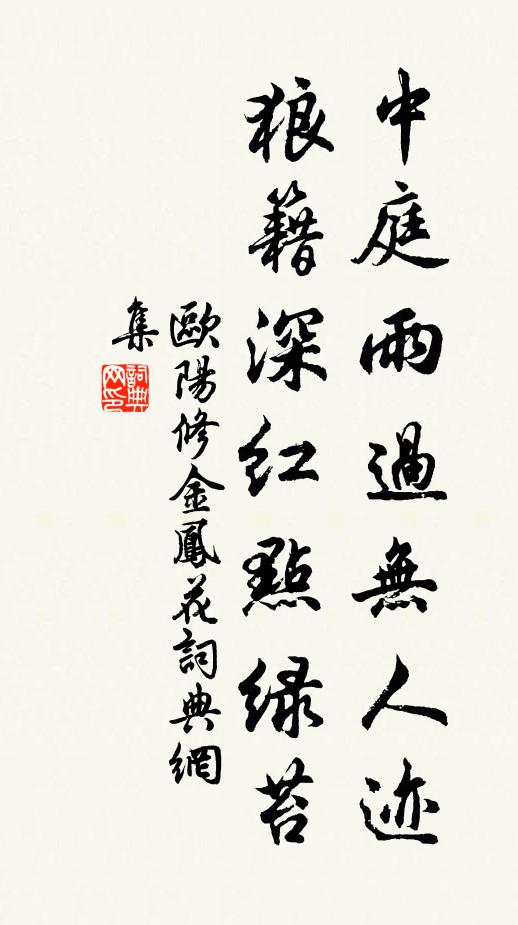 中庭雨過無人迹
狼籍深紅點綠苔
歐陽修金鳳花詞典網
集
詞典网印